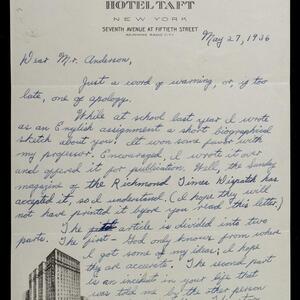 HOTEL TAFT
NEW YORK
SEVENTH AVENUE AT FIFTIETH STREET
ADJOINING RADIO CITY
May 27, 1936
Dear Mr. Anderson,
Just a word of warning, or, if too
late, one of apology.
While at school last year I wrote
as an English assignment a short biographical
sketch about you. It won some favor with
my professor. Encouraged, I wrote it over
and offered it for publication. Well, the Sunday
magazine of the Richmond Times Dispatch has
accepted it, so I understand. (I hope they will
not have printed it before you read this letter.)
The article is divided into two
parts. The first - God only knows from where
I got some of my ideas; I hope
they are accurate. The second part
is an incident in your life that
was told me by the other person